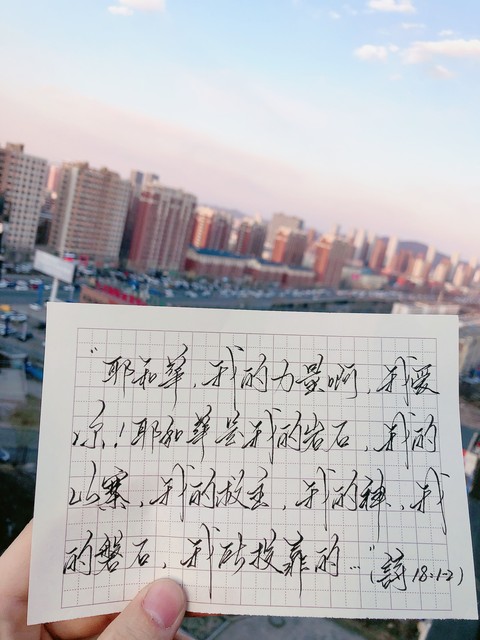 “耶和華,我的力量啊,我愛
你!耶和華是我的岩石,我的
山寨,我的救主,我的神,我
的磐石,我所投靠的…”(詩18:1-2)